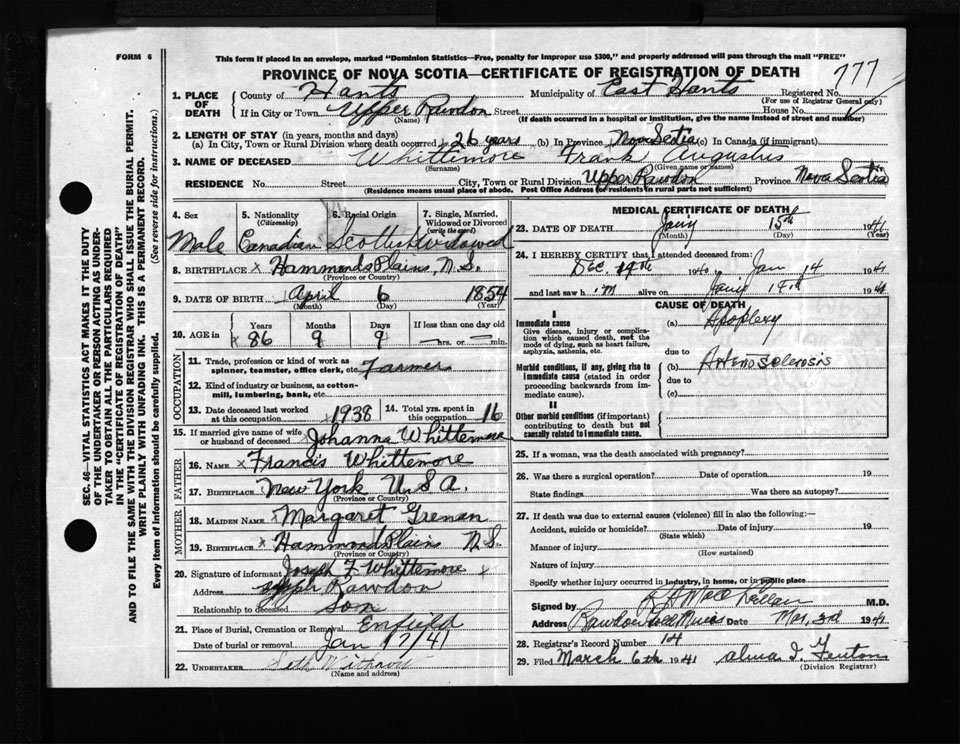 FORM 6
This form if placed in an envelope, marked "Dominion Statistics—Free, penalty for improper use $300," and properly addressed will pass through the mail "FREE"
PROVINCE OF NOVA SCOTIA—CERTIFICATE OF REGISTRATION OF DEATH
777
SEC. 46—VITAL STATISTICS ACT MAKES IT THE DUTY
OF THE UNDERTAKER OR PERSON ACTING AS UNDER-
TAKER TO OBTAIN ALL THE PARTICULARS REQUIRED
IN THE "CERTIFICATE OF REGISTRATION OF DEATH"
AND TO FILE THE SAME WITH THE DIVISION REGISTRAR WHO SHALL ISSUE THE BURIAL PERMIT.
WRITE PLAINLY WITH UNFADING INK. THIS IS A PERMANENT RECORD.
Every item of information should be carefully supplied. (See reverse side for instructions.)
1. PLACE OF DEATH
County of Hants Municipality of East Hants Registered No.
(For use of Registrar General only)
If in City or Town Upper Rawdon Street House No.
(Name) (If death occurred in a hospital or institution, give the name instead of street and number)
2. LENGTH OF STAY (in years, months and days)
(a) In City, Town or Rural Division where death occurred 26 years (b) In Province Nova Scotia (c) In Canada (if immigrant)
3. NAME OF DECEASED Whittemore Frank Augustus
(Surname) (Given name or names)
RESIDENCE No. Street City, Town or Rural Division Upper Rawdon Province Nova Scotia
(Residence means usual place of abode. Post Office Address for residents in rural parts not sufficient)
4. Sex 5. Nationality (Citizenship) 6. Racial Origin 7. Single, Married, Widowed or Divorced (write the word)
Male Canadian Scottish Widowed
8. BIRTHPLACE x Hammonds Plains, N.S.
(Province or Country)
9. DATE OF BIRTH April 6 1854
(Month) (Day) (Year)
10. AGE in Years Months Days If less than one day old
x 86 9 9 hrs. or min.
OCCUPATION
11. Trade, profession or kind of work as spinner, teamster, office clerk, etc. Farmer
12. Kind of industry or business, as cotton-mill, lumbering, bank, etc.
13. Date deceased last worked at this occupation 1938 14. Total yrs. spent in this occupation 16
15. If married give name of wife or husband of deceased Johanna Whittemore
FATHER
16. Name x Francis Whittemore
17. Birthplace New York U.S.A.
(Province or Country)
MOTHER
18. Maiden Name Margaret Grenan
19. Birthplace x Hammonds Plains N.S.
(Province or Country)
20. Signature of informant Joseph F. Whittemore x
Address Upper Rawdon
Relationship to deceased son
21. Place of Burial, Cremation or Removal Enfield
Date of burial or removal Jan 17/41
22. UNDERTAKER Seth
(Name and address)
MEDICAL CERTIFICATE OF DEATH
23. DATE OF DEATH Jany 15th 1941
(Month) (Day) (Year)
24. I HEREBY CERTIFY that I attended deceased from:
Dec 19th 1940 to Jan 14 1941
and last saw h im alive on Jany 14th 1941
CAUSE OF DEATH
I
Immediate cause
Give disease, injury or complication which caused death, not the mode of dying, such as heart failure, asphyxia, asthenia, etc.
(a) Apoplexy
due to
Morbid conditions, if any, giving rise to immediate cause (stated in order proceeding backwards from immediate cause).
(b) Arteriosclerosis
due to
(c)
II
Other morbid conditions (if important) contributing to death but not causally related to immediate cause.
25. If a woman, was the death associated with pregnancy?
26. Was there a surgical operation? Date of operation 19
State findings Was there an autopsy?
27. If death was due to external causes (violence) fill in also the following:—
Accident, suicide or homicide? Date of injury 19
(State which)
Manner of injury
(How sustained)
Nature of injury
Specify whether injury occurred in industry, in home, or in public place
Signed by M.D.
Address Rawdon Gold Mines Date Mar. 3rd 1941
28. Registrar's Record Number 14
29. Filed March 6th 1941 Alma I. Fenton
(Division Registrar)